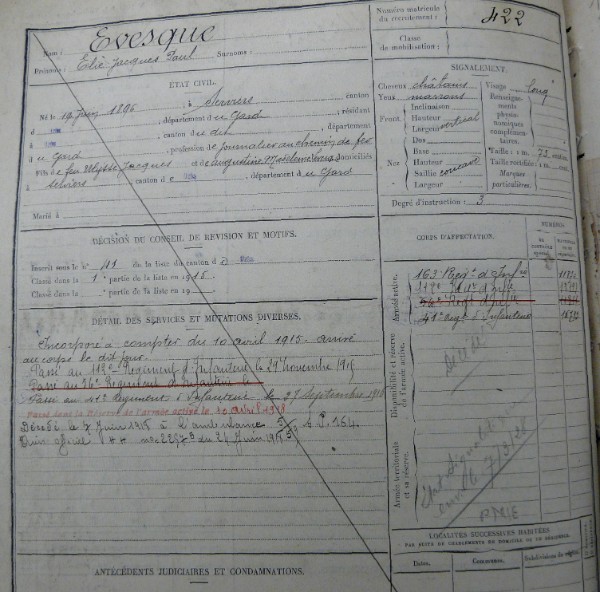 Evesque
Nom :
Prénoms : Elie Jacques Paul Surnoms :
Numéro matricule du recrutement : 422
Classe de mobilisation :
ÉTAT CIVIL.
Né le 19 1896, à Serviers, canton
d , département du Gard, résidant
à , canton du dit, département
du Gard, profession de journalier au chemin de fer
fils de feu Ulysse Jacques et de Augustine domiciliés
à Serviers canton d , département du Gard
Marié à
SIGNALEMENT.
Cheveux châtains
Yeux marrons
Front. Inclinaison
Hauteur vertical
Largeur
Nez Dos
Base
Hauteur
Saillie concave
Largeur
Visage long
Renseignements physionomiques complémentaires.
Taille : 1 m. 72 centim.
Taille rectifiée : 1 m. cent.
Marques particulières.
Degré d'instruction : 3
DÉCISION DU CONSEIL DE RÉVISION ET MOTIFS.
Inscrit sous le n° 41 de la liste du canton d
Classé dans la 1e partie de la liste en 1915
Classé dans la partie de la liste en 19
DÉTAIL DES SERVICES ET MUTATIONS DIVERSES.
Incorporé à compter du 10 avril 1915 arrivé
au corps le dit jour.
Passé au 112e Régiment d'Infanterie le 29 Novembre 1915
Passé au Régiment d'Infanterie le
Passé au 41e Régiment d'Infanterie le 27 Septembre 1916
Passé dans la Réserve de l'armée active le 10 avril 1918
Décédé le 7 Juin 1918 à l'ambulance S.P. 154.
Avis officiel du Juin 1918
ANTÉCÉDENTS JUDICIAIRES ET CONDAMNATIONS.
CORPS D'AFFECTATION.
NUMÉROS
Armée active.
163 Régt d'Infrie
112e Régt d'Infie
Régt d'Infie
41e Régt d'Infanterie
Disponibilité et réserve de l'armée active.
Décédé
Armée territoriale et sa réserve.
7/3/21
LOCALITÉS SUCCESSIVES HABITÉES
PAR SUITE DE CHANGEMENTS DE DOMICILE OU DE RÉSIDENCE.
Dates. Communes. Subdivisions de région.